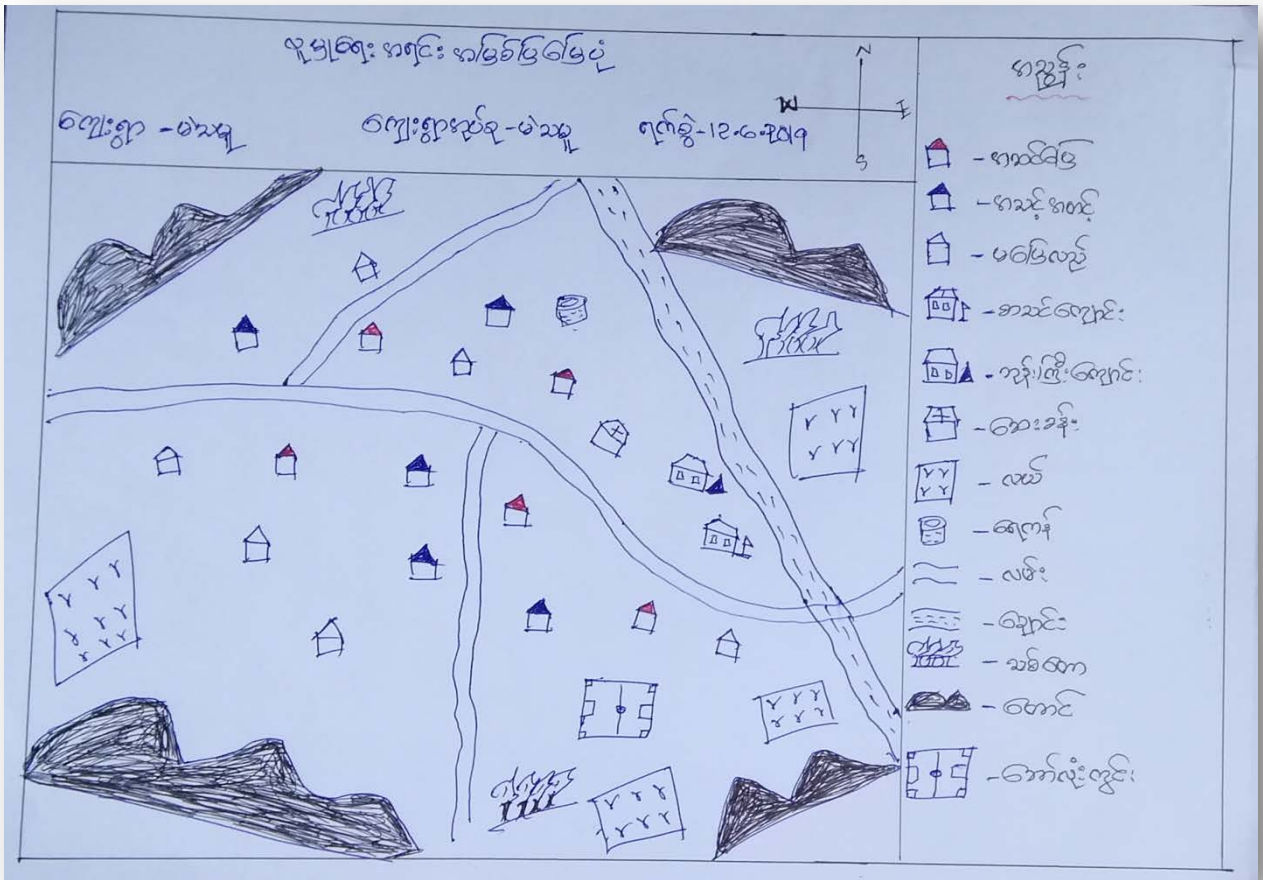 လူမှုရေး အရင်း အမြစ်ပြမြေပုံ
ကျေးရွာ - မဲသမူ ကျေးရွာအုပ်စု - မဲသမူ ရက်စွဲ - ၁၂-၆-၂၀၁၉
N
W E
S
အညွှန်း
- အဆင်ပြေ
- အသင့်အတင့်
- မပြေလည်
- စာသင်ကျောင်း
- ဘုန်းကြီးကျောင်း
- ဆေးခန်း
- လယ်
- ရေကန်
- လမ်း
- ချောင်း
- သစ်တော
- တောင်
- ဘော်လုံးကွင်း